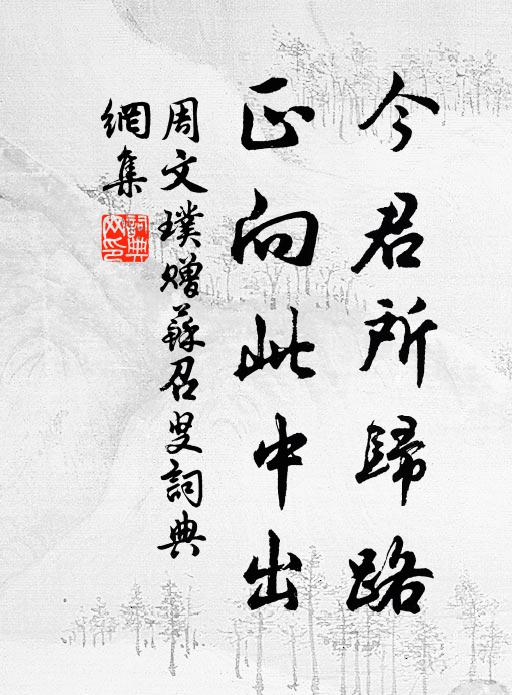 今君所歸路
正向此中出
周文璞贈蘇召叟詞典
網集
詞典
网印